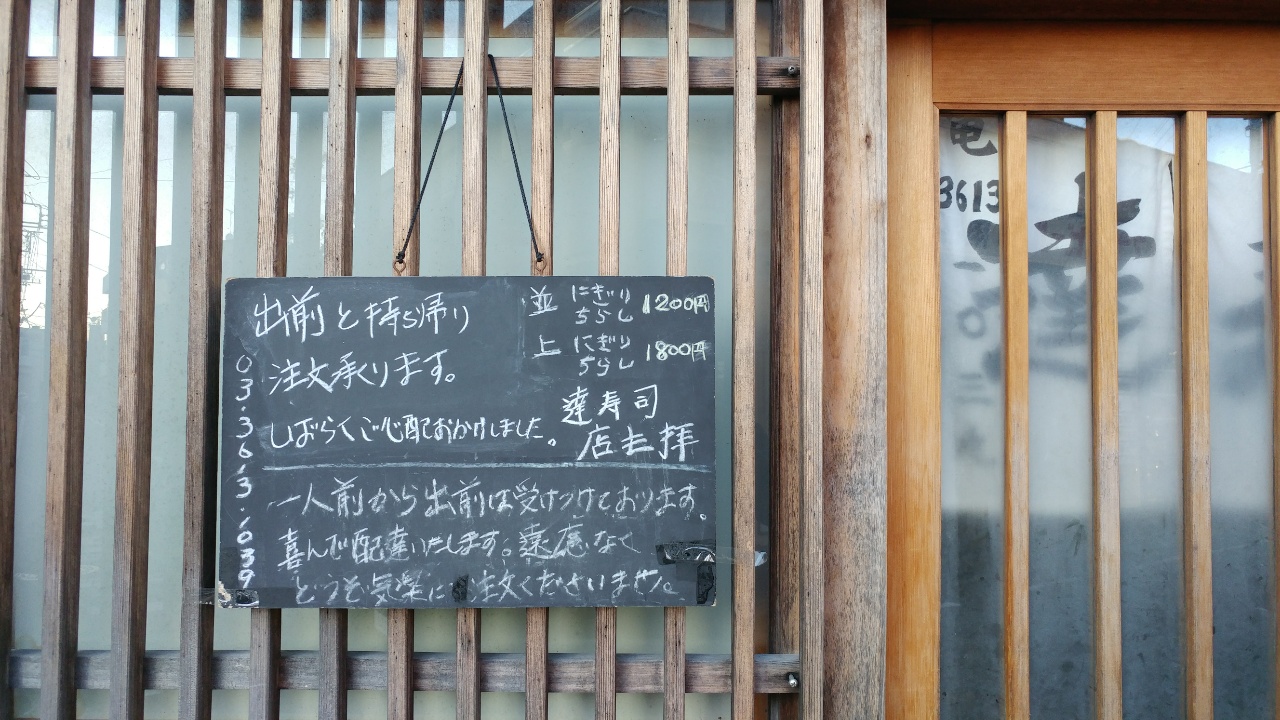 出前と持ち帰り
注文承ります。
しばらくご心配おかけしました。
並 にぎり ちらし 1200円
上 にぎり ちらし 1800円
達寿司
店主拝
03.3613.1039
一人前から出前は受けつけております。
喜んで配達いたします。遠慮なく
どうぞ気楽に 注文くださいませ。
電
3613
一〇三
達